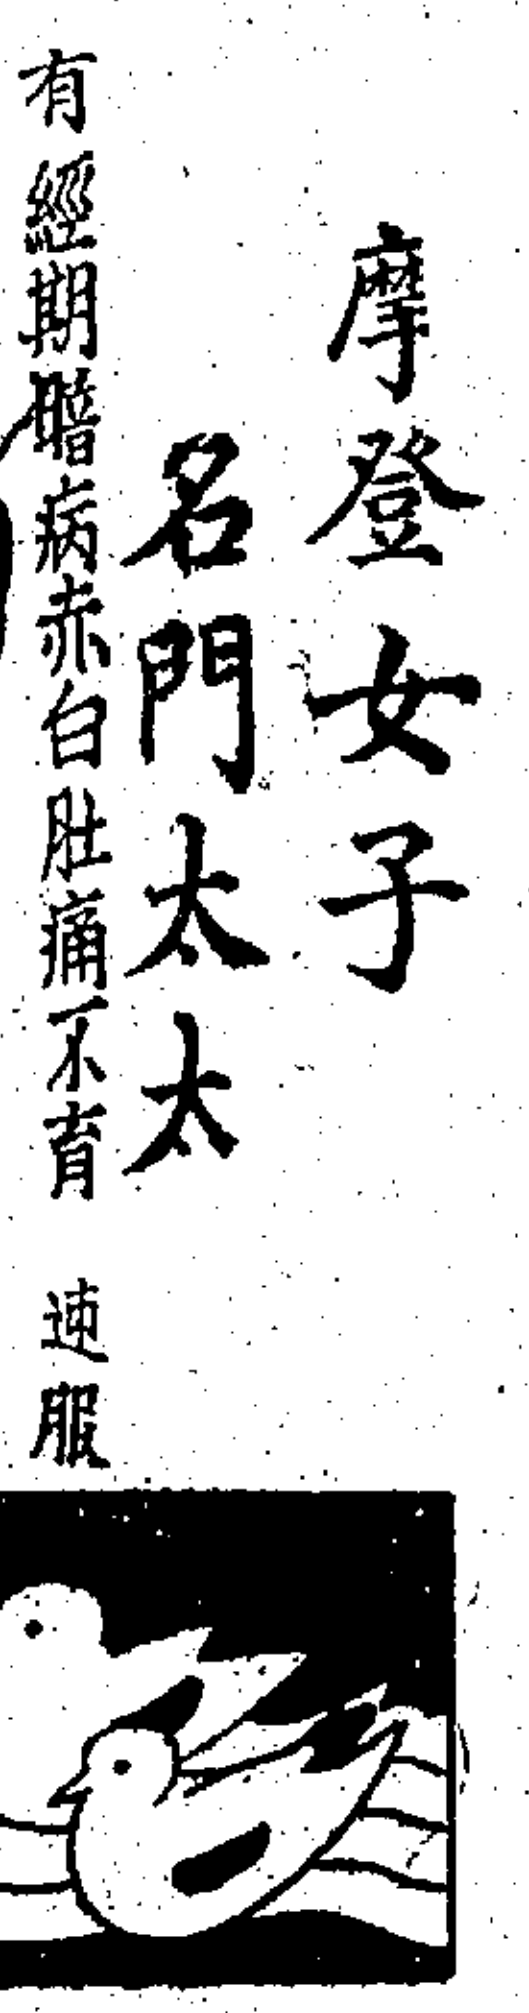 摩登女子
名門太太
有經期暗病赤白肚痛不育 速服